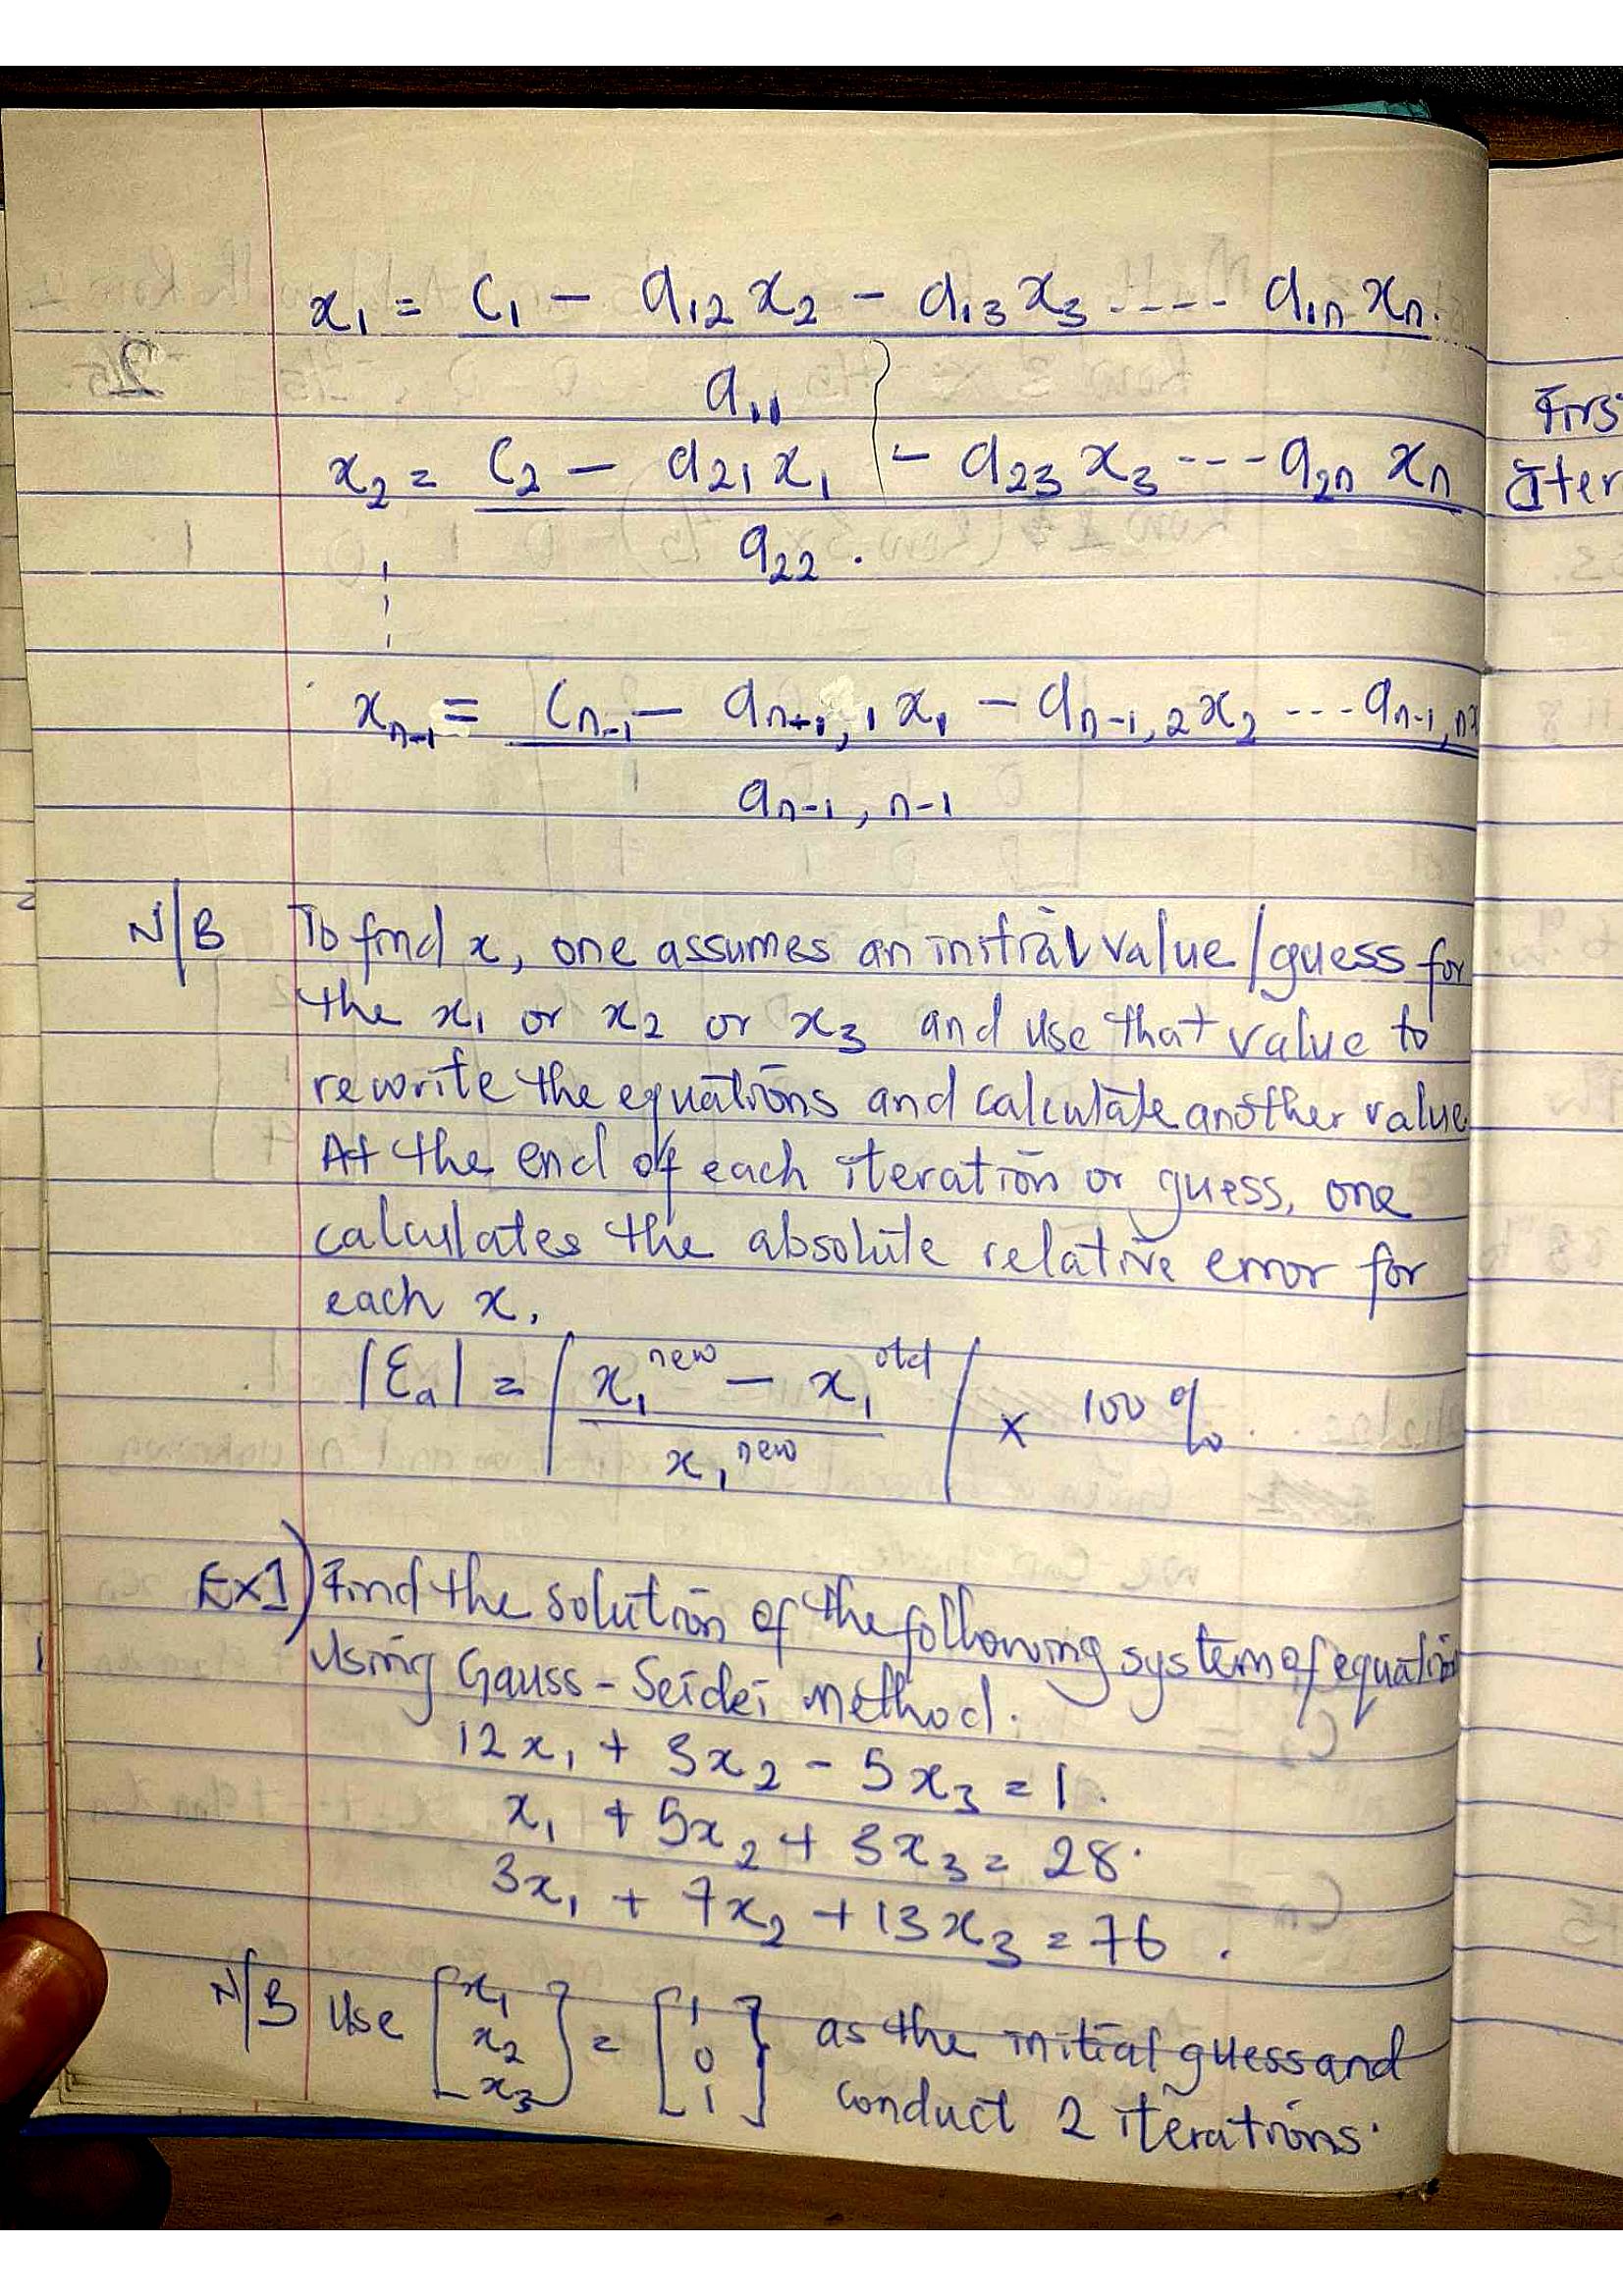 x₁ = C₁ - a₁₂ x₂ - a₁₃ x₃ ---- a₁ₙ xₙ.
a₁₁
x₂ = C₂ - a₂₁ x₁ - a₂₃ x₃ --- a₂ₙ xₙ
a₂₂ .
xₙ₋₁ = Cₙ₋₁ - aₙ₊₁,₁ x₁ - aₙ₋₁,₂ x₂ --- aₙ₋₁,ₙx
aₙ₋₁,ₙ₋₁
N/B To find x, one assumes an initial value/guess for
the x₁ or x₂ or x₃ and use that value to
rewrite the equations and calculate another value.
At the end of each iteration or guess, one
calculates the absolute relative error for
each x.
|Ɛₐ| = | x₁ⁿᵉʷ - x₁ᵒˡᵈ | × 100 %.
x₁ⁿᵉʷ
Ex1) Find the solution of the following system of equation
Using Gauss-Seidei Method.
12x₁ + 3x₂ - 5x₃ = 1.
x₁ + 5x₂ + 3x₃ = 28.
3x₁ + 7x₂ + 13x₃ = 76 .
N/B Use [x₁ x₂ x₃] = [1 0 1] as the initial guess and
conduct 2 iterations.
Firs
iter